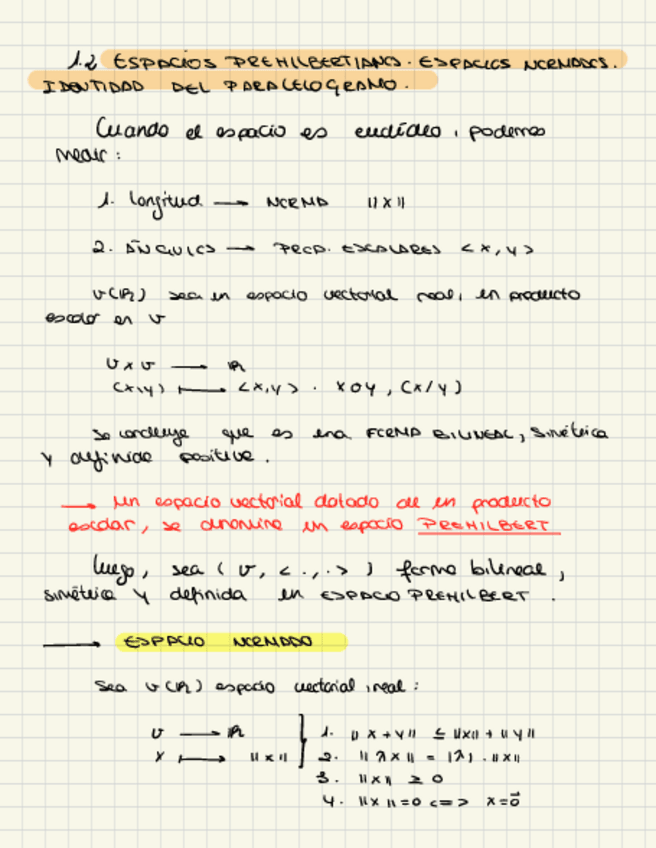 1.2 ESPACIOS PREHILBERTIANO. ESPACIOS NORMADOS.
IDENTIDAD DEL PARALELOGRAMO.
Cuando el espacio es euclídeo, podemos
medir:
1. longitud → NORMA ||x||
2. ÁNGULOS → PROD. ESCALARES <x,y>
V(R) sea un espacio vectorial real, un producto
escalar en V
V x V → R
(x,y) ↦ <x,y> . xoy, (x/y)
Se concluye que es una FORMA BILINEAL, simétrica
y definida positiva.
→ Un espacio vectorial dotado de un producto
escalar, se denomina un espacio PREHILBERT
luego, sea (V, <.,.>) forma bilineal,
simétrica y definida un ESPACIO PREHILBERT.
→ ESPACIO NORMADO
Sea V(R) espacio vectorial real:
V → R } 1. ||x+y|| ≤ ||x|| + ||y||
x ↦ ||x|| 2. ||λx|| = |λ|.||x||
3. ||x|| ≥ 0
4. ||x||=0 <=> x=0⃗